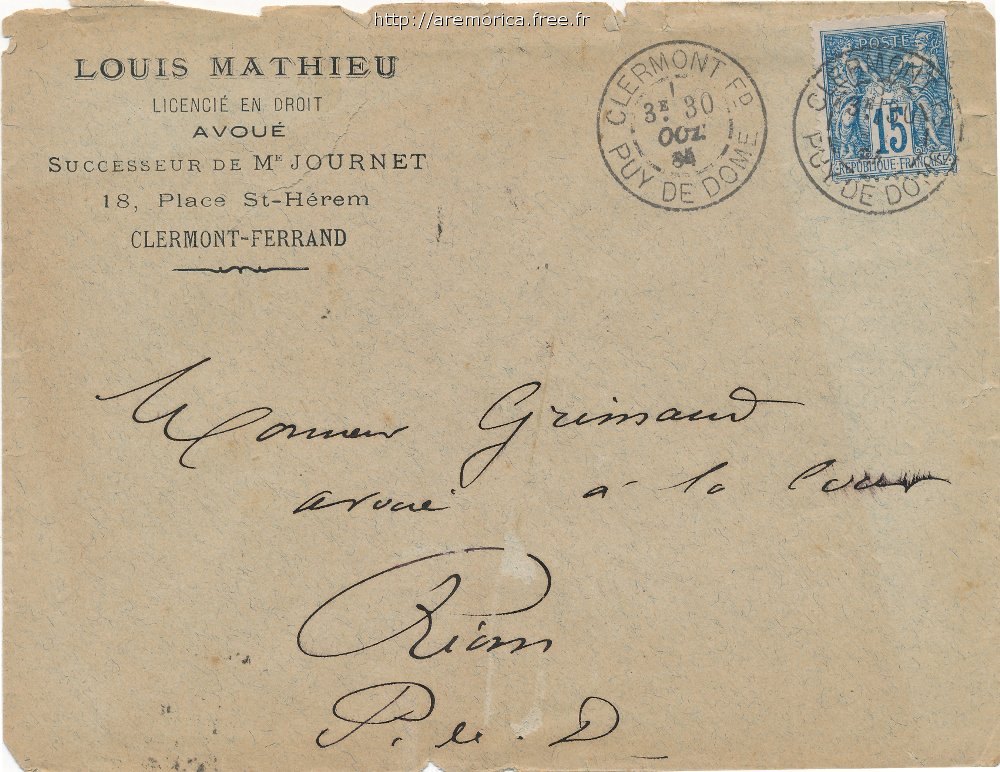 http://aremorica.free.fr
LOUIS MATHIEU
LICENCIÉ EN DROIT
AVOUÉ
SUCCESSEUR DE ME JOURNET
18, Place St-Hérem
CLERMONT-FERRAND
CLERMONT FD
3E 30
OCT
PUY DE DOME
POSTE
15
RÉPUBLIQUE FRANÇAISE
CLERMONT FD
3E 30
PUY DE DOME
Monsieur Grimaud
avoué à la Cour
Riom
P. de. D